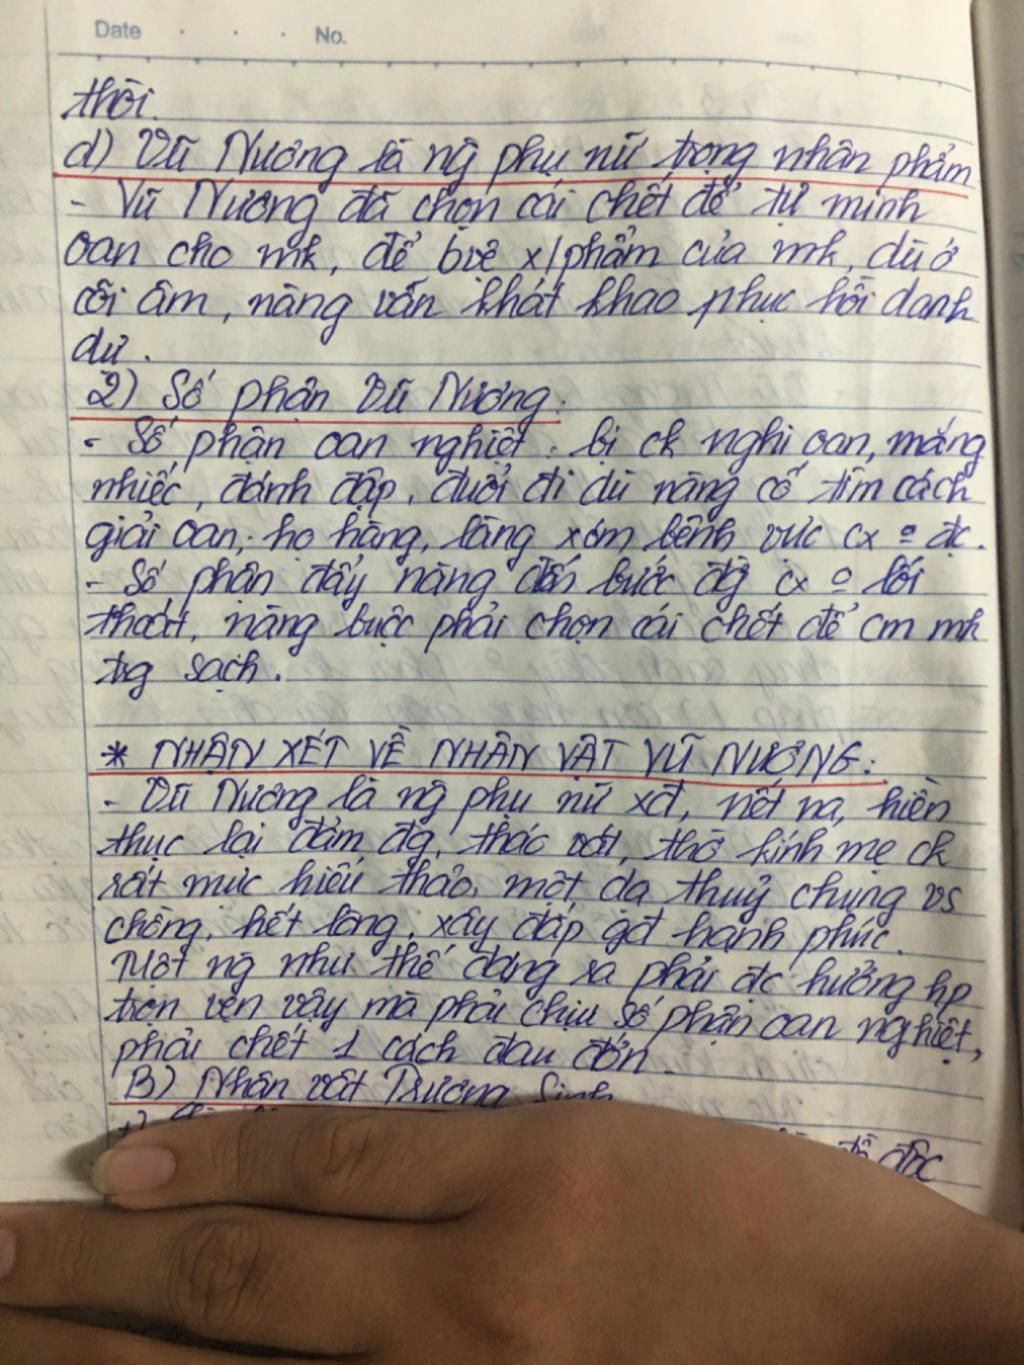 Date . . . No.
thời.
d) Vũ Nương là ng̃ phụ nữ trọng nhân phẩm
- Vũ Nương đã chọn cái chết để tự minh
oan cho mk, để bvệ x/phẩm của mk, dù ở
cõi âm, nàng vẫn khát khao phục hồi danh
dự.
2) Số phận Vũ Nương:
- Số phận oan nghiệt: bị ck nghi oan, mắng
nhiếc, đánh đập, đuổi đi dù nàng cố tìm cách
giải oan, họ hàng, làng xóm bênh vực cx º đc.
- Số phận đẩy nàng đến bước đg̀ cx º lối
thoát, nàng buộc phải chọn cái chết để cm mk
tr̃g sạch.
* NHẬN XÉT VỀ NHÂN VẬT VŨ NƯƠNG:
- Vũ Nương là ng̃ phụ nữ xđ, nết na, hiền
thục lại đảm đg, tháo vát, thờ kính mẹ ck
rất mực hiếu thảo, một dạ thuỷ chung vs
chồng, hết lòng xây đắp gđ hạnh phúc.
Một ng̃ như thế đáng ra phải đc hưởng hp
trọn vẹn vậy mà phải chịu số phận oan nghiệt,
phải chết 1 cách đau đớn.
B) Nhân vật Trương Sinh
độc